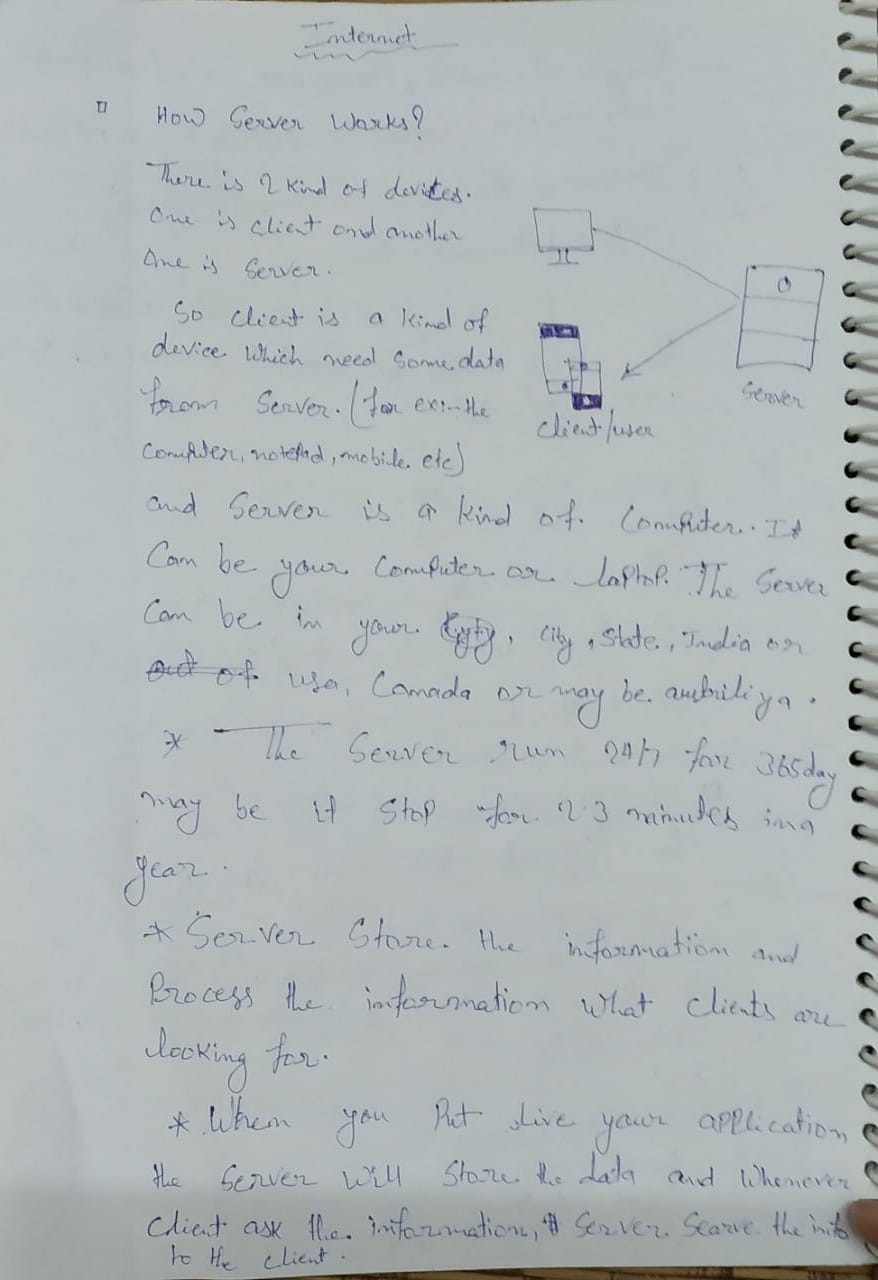 Internet
How Server Works?
There is 2 kind of devices.
One is client and another
One is Server.
So client is a kind of
device which need some data
from Server. (for ex:- the
Computer, notepad, mobile etc)
Server
Client/user
and Server is a kind of Computer. It
Can be your Computer or laptop. The Server
Can be in your, City, State, India or
out of usa, Canada or may be
* The Server run 24/7 for 365day
may be it stop for 2 3 minutes in a
year.
* Server Store the information and
Process the information what clients are
looking for.
* When you Put live your application
the Server will Store the data and Whenever
Client ask the information, Server Searve the info
to the client.